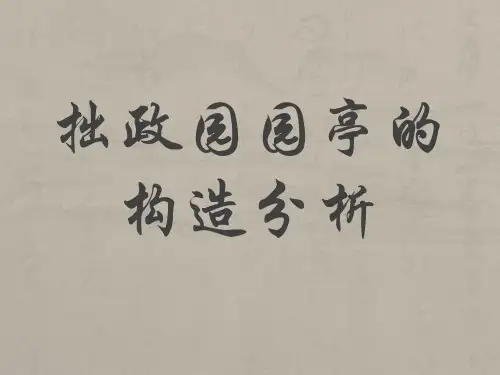 拙政园园亭的
构造分析